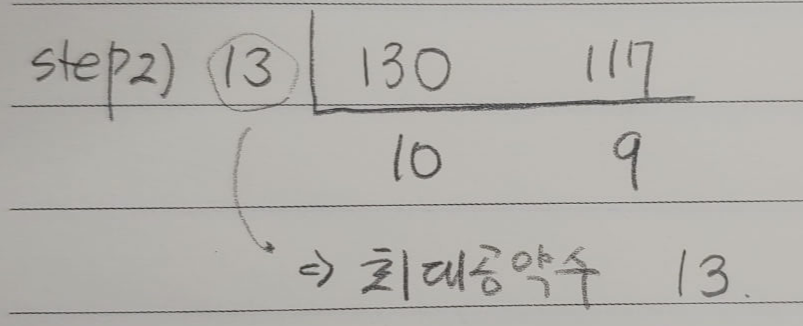 step2) 13 130 117
10 9
⇒ 최대공약수 13.